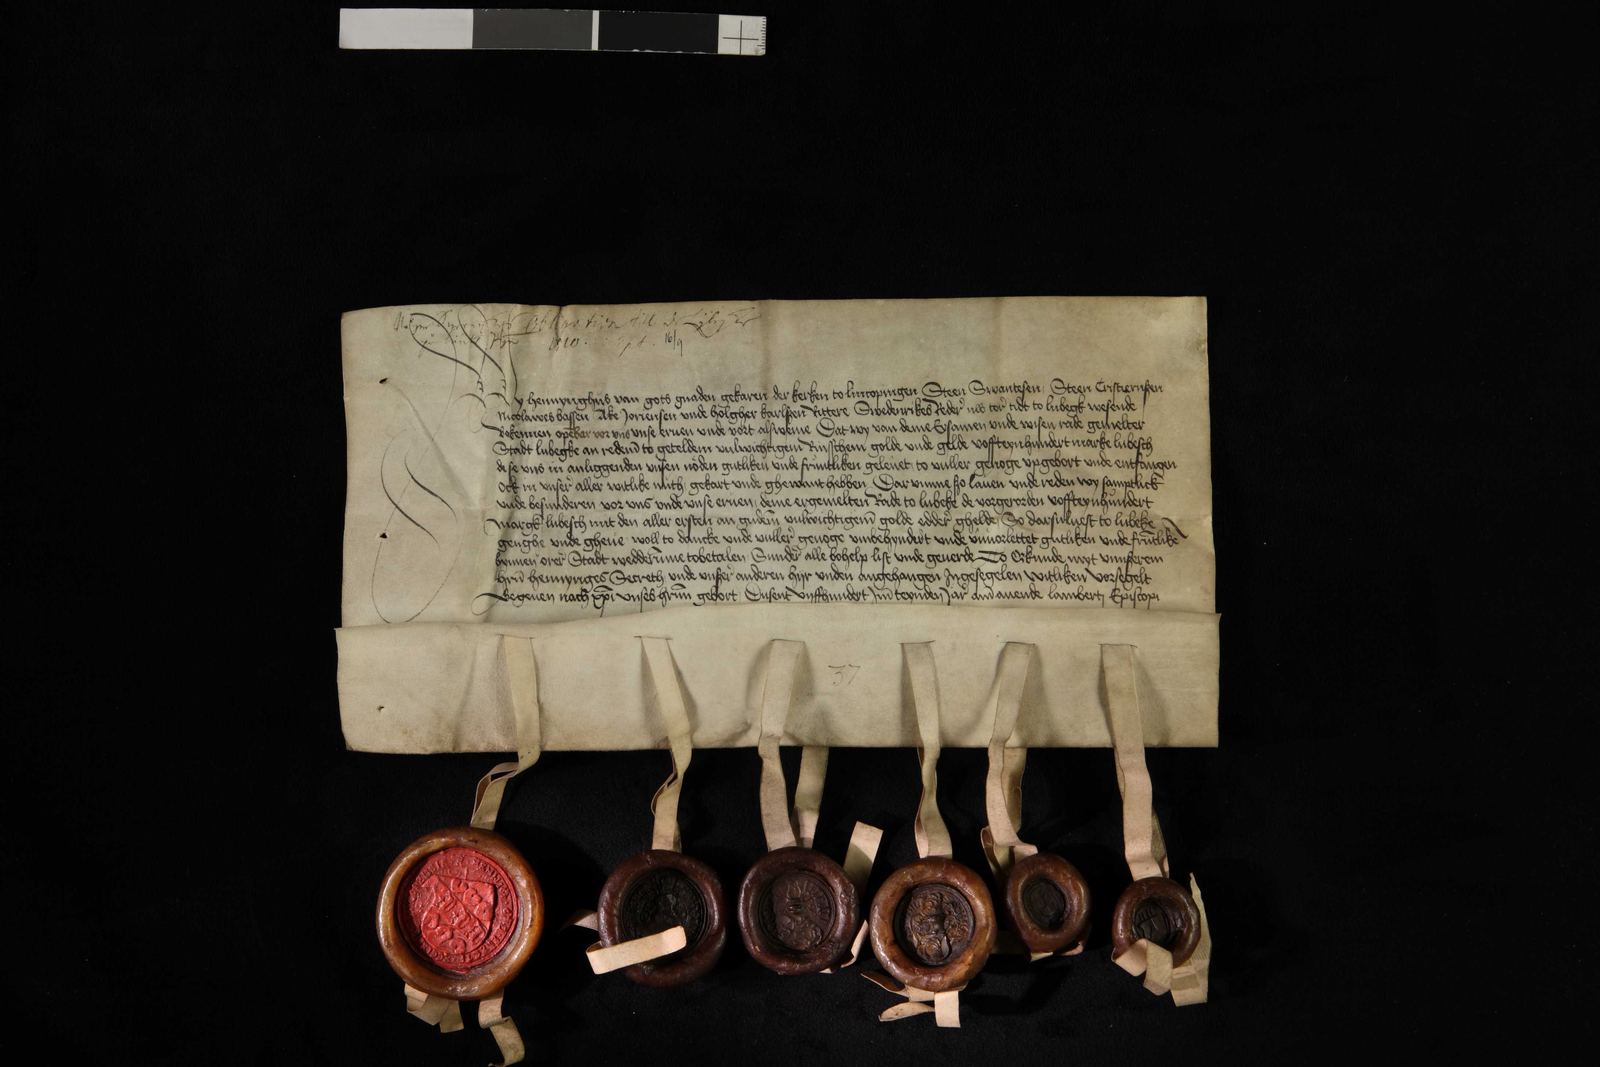 Obligation till de Lybske
1510 Sept. 16/9
Wy hennynghus van gots gnaden gekaren der kerken to lincopingen Steen Swantesen Steen Cristiernsen
Nicolawes bassen Ake Joriensen unde holgher karlssen Rittere Swedenrikes Reder nu tor tidt to lubegk wesende
Bekennen openbar vor uns unse erven unde vort alsweme Dat wy van deme Ersamen unde wisen rade gemelter
Stadt lubegke an redem to getelden vulwichtigem Rinsschem golde unde gelde voffteynhundert marke lubesch
de se uns in anliggenden unsen noden gutliken unde fruntliken gelenet to vuller genoge upgebort unde entfangen
Ock in unser aller witlike nuth gekart unde ghewant hebben Dar umme so laven unde reden wy samptlick
unde besunderen vor uns unde unse erven deme ergemelten Rade to lubeke de vorgerorden voffteynhundert
margk lubesch mit den aller ersten an gudem vulwichtigem golde edder ghelde So darsulvest to lubeke
genghe unde gheve woll to dancke unde vuller genoge umbehyndert unde unvorlettet gutliken unde fruntlike
bynnen orer Stadt wedderumme tobetalen Sunder alle behelp list unde geverde To Orkunde myt unnserem
hern hennynges Secreth unde unser anderen hyr unden angehangen Ingesegelen witliken vorsegelt
Gegeven nach xpi unses hern gebort Dusent vyffhundert im teynden Jar am avende lamberti Episcopi
37